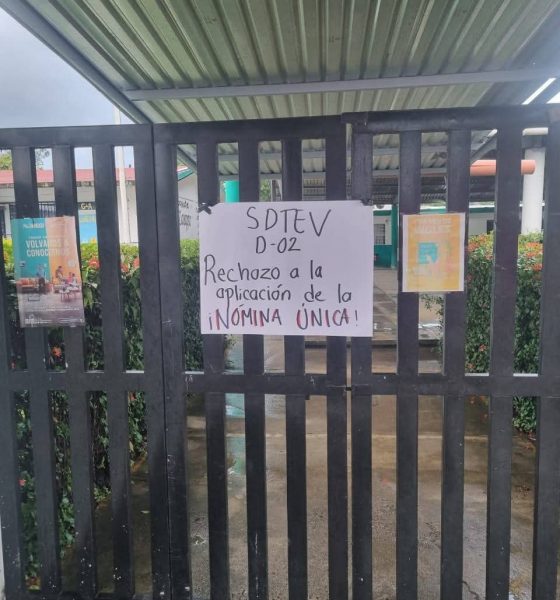 VOLVAMOS A
CONOCERNOS
SDTEV
D-02
Rechazo a la
aplicación de la
¡NÓMINA ÚNICA!